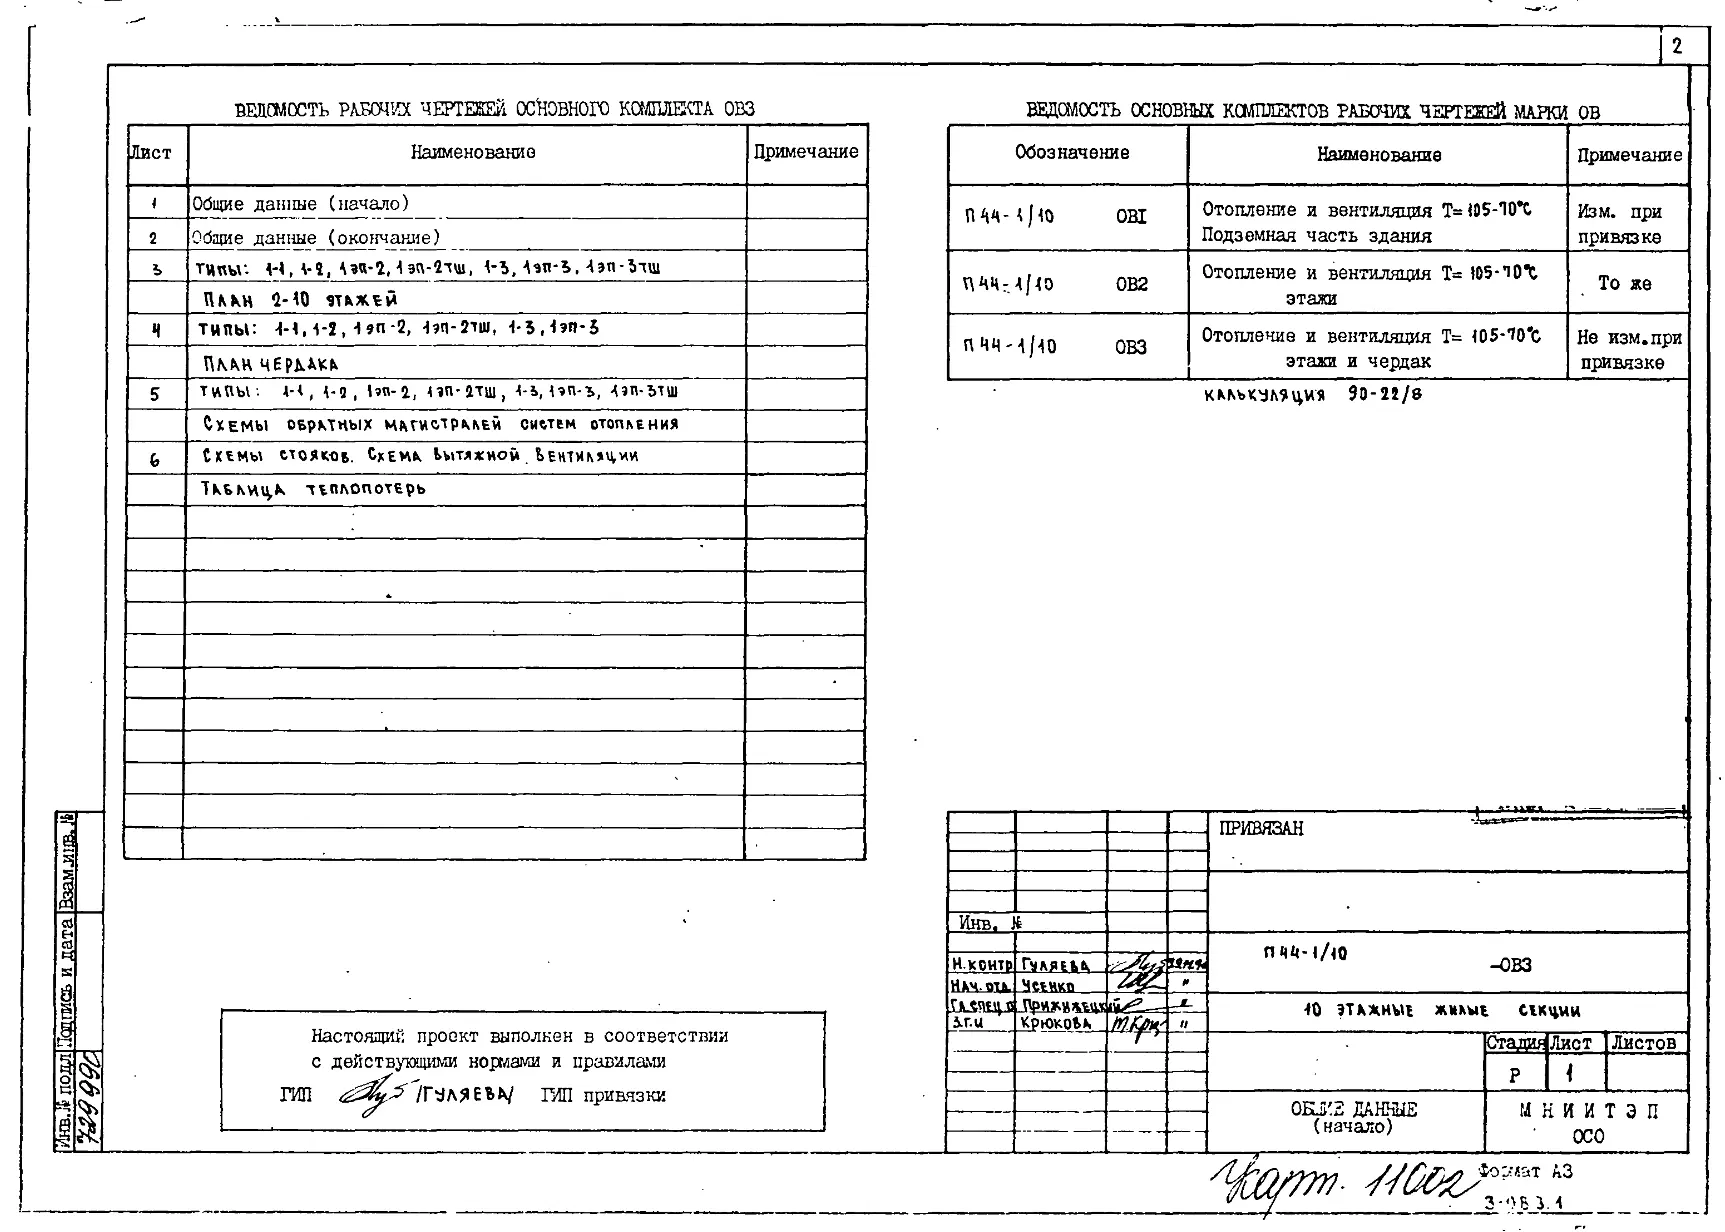 2
ВЕДОМОСТЬ РАБОЧИХ ЧЕРТЕЖЕЙ ОСНОВНОГО КОМПЛЕКТА ОВ3
Лист Наименование Примечание
1 Общие данные (начало)
2 Общие данные (окончание)
3 типы: 1-1, 1-2, 1эп-2, 1эп-2тш, 1-3, 1эп-3, 1эп-3тш
План 2-10 этажей
4 типы: 1-1, 1-2, 1эп-2, 1эп-2тш, 1-3, 1эп-3
План чердака
5 типы: 1-1, 1-2, 1эп-2, 1эп-2тш, 1-3, 1эп-3, 1эп-3тш
Схемы обратных магистралей систем отопления
6 Схемы стояков. Схема вытяжной вентиляции
Таблица теплопотерь
ВЕДОМОСТЬ ОСНОВНЫХ КОМПЛЕКТОВ РАБОЧИХ ЧЕРТЕЖЕЙ МАРКИ ОВ
Обозначение Наименование Примечание
П44-1/10 ОВ1 Отопление и вентиляция Т=105-70°С Изм. при
Подземная часть здания привязке
П44-1/10 ОВ2 Отопление и вентиляция Т=105-70°С То же
этажи
П44-1/10 ОВ3 Отопление и вентиляция Т=105-70°С Не изм.при
этажи и чердак привязке
КАЛЬКУЛЯЦИЯ 90-22/8
Настоящий проект выполнен в соответствии
с действующими нормами и правилами
ГИП /ГУЛЯЕВА/ ГИП привязки
Взам.инв.№
Подпись и дата
Инв.№ подл
729990
ПРИВЯЗАН
Инв. №
Н.контр Гуляева
Нач.отд. Усенко "
Гл.спец.о Прижижецкий "
З.г.и Крюкова "
П44-1/10 -ОВ3
10 ЭТАЖНЫЕ ЖИЛЫЕ СЕКЦИИ
Стадия Лист Листов
Р 1
ОБЩИЕ ДАННЫЕ
(начало)
МНИИТЭП
ОСО
Карт. 11002
Формат А3
3-ОВ3.1